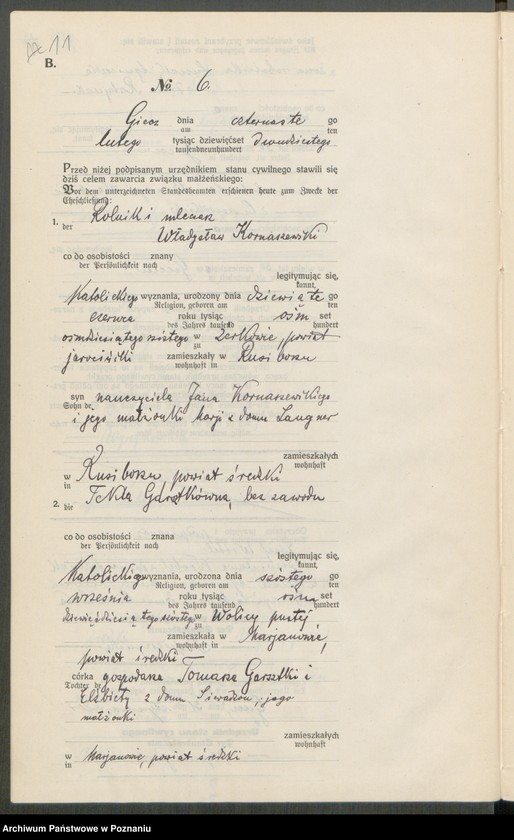 11
B.
No. 6.
Giecz dnia czternaste go
am ten
lutego tysiąc dziewięćset dwudziestego
tausendneunhundert
Przed niżej podpisanym urzędnikiem stanu cywilnego stawili się
dziś celem zawarcia związku małżeńskiego:
Vor dem unterzeichneten Standesbeamten erschienen heute zum Zwecke der
Eheschließung:
1. Rolnik i mleczarz
der
Władysław Kornaszewski
co do osobistości znany
der Persönlichkeit nach
legitymując się,
kannt,
Katolickiego wyznania, urodzony dnia dziewiąte go
Religion, geboren am ten
czerwca roku tysiąc ośm set
des Jahres tausend hundert
osmdziesiątego szóstego w Żerkowie, powiat
zu
jarociński zamieszkały w Rusiborzu
wohnhaft in
syn nauczyciela Jana Kornaszewskiego
Sohn de
i jego małżonki Marji z domu Langner
zamieszkałych
wohnhaft
w Rusiborzu, powiat średzki
in
2. Tekla, bez zawodu
die
co do osobistości znana
der Persönlichkeit nach
legitymując się,
kannt,
Katolickiego wyznania, urodzona dnia szóstego go
Religion, geboren am ten
września roku tysiąc ośm set
des Jahres tausend hundert
dziewięćdziesiątego szóstego w Wolicy pustej
zu
zamieszkała w Marjanowie,
wohnhaft in
powiat średzki
córka gospodarza Tomasza i
Tochter de
Elżbiety z domu, jego
małżonki
zamieszkałych
wohnhaft
w Marjanowie, powiat średzki
in
Archiwum Państwowe w Poznaniu